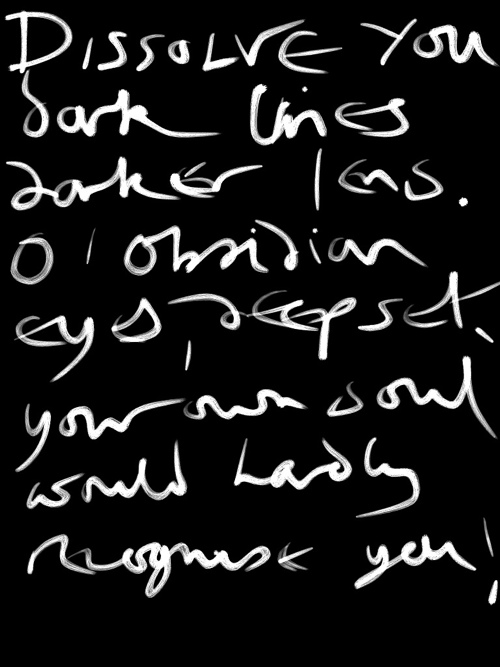 Dissolve you
dark lines
darker lens.
O' obsidian
eyes, deepset,
your own soul
would hardly
recognise you!